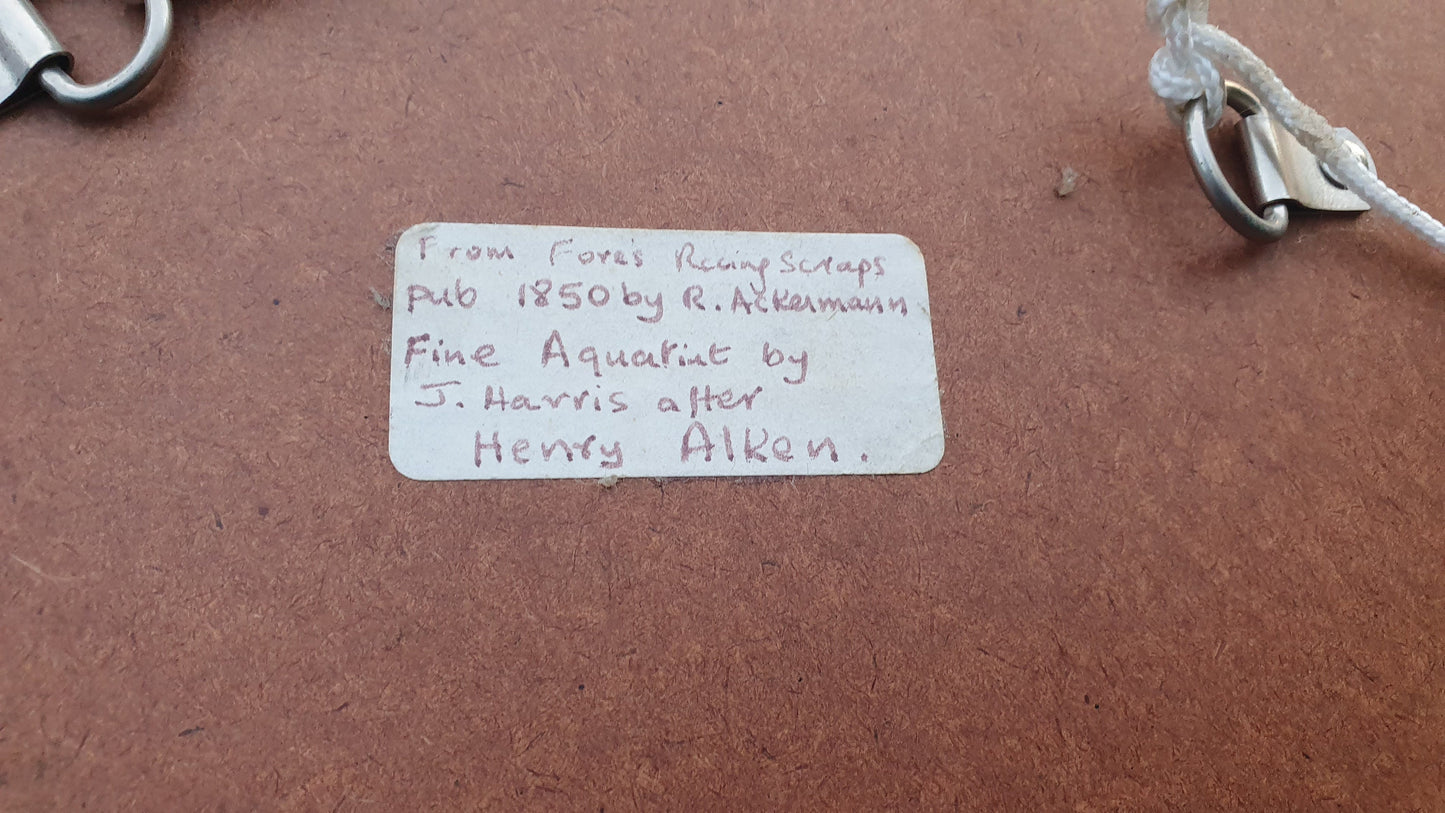 From Fore's Racing Scraps
pub 1850 by R. Ackermann
Fine Aquatint by
J. Harris after
Henry Alken.